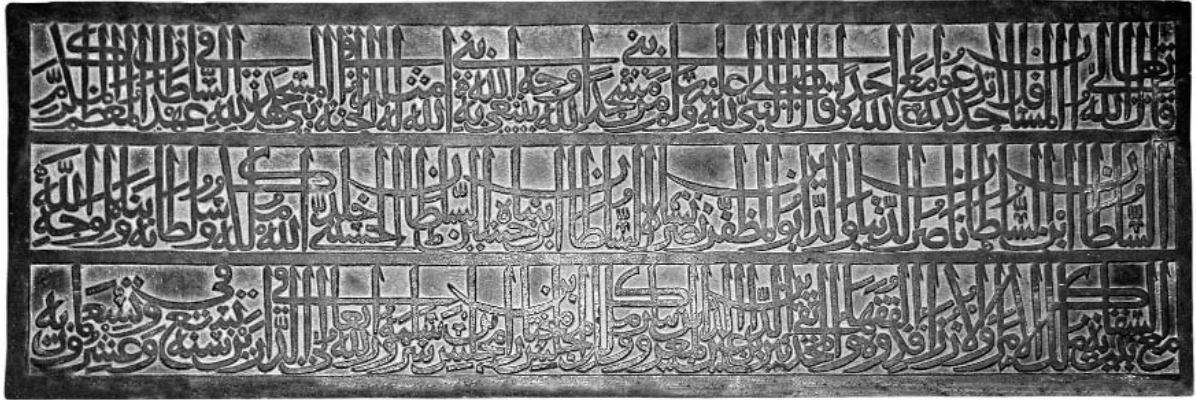 قال الله تعالى وان المساجد لله فلا تدعوا مع الله احدا وقال النبي صلى الله عليه وسلم من بنى مسجدا لله يبتغي به وجه الله بنى الله له مثله في الجنة بنى هذا المسجد لله في عهد السلطان المعظم المكرم
السلطان ابن السلطان ناصر الدنيا والدين ابو المظفر نصرة شاه السلطان ابن حسين شاه السلطان الحسيني خلد الله ملكه وسلطانه بناه لوجه الله
مع بيت السقاية ملك الامراء والوزراء قدوة الفقهاء والمحدثين تقي الدين بن عين الدين المعروف ملك المجلس بن مختار المجلس بن سرور سلمه الله تعالى في الدارين في سنة تسع وعشرين وتسعمائة